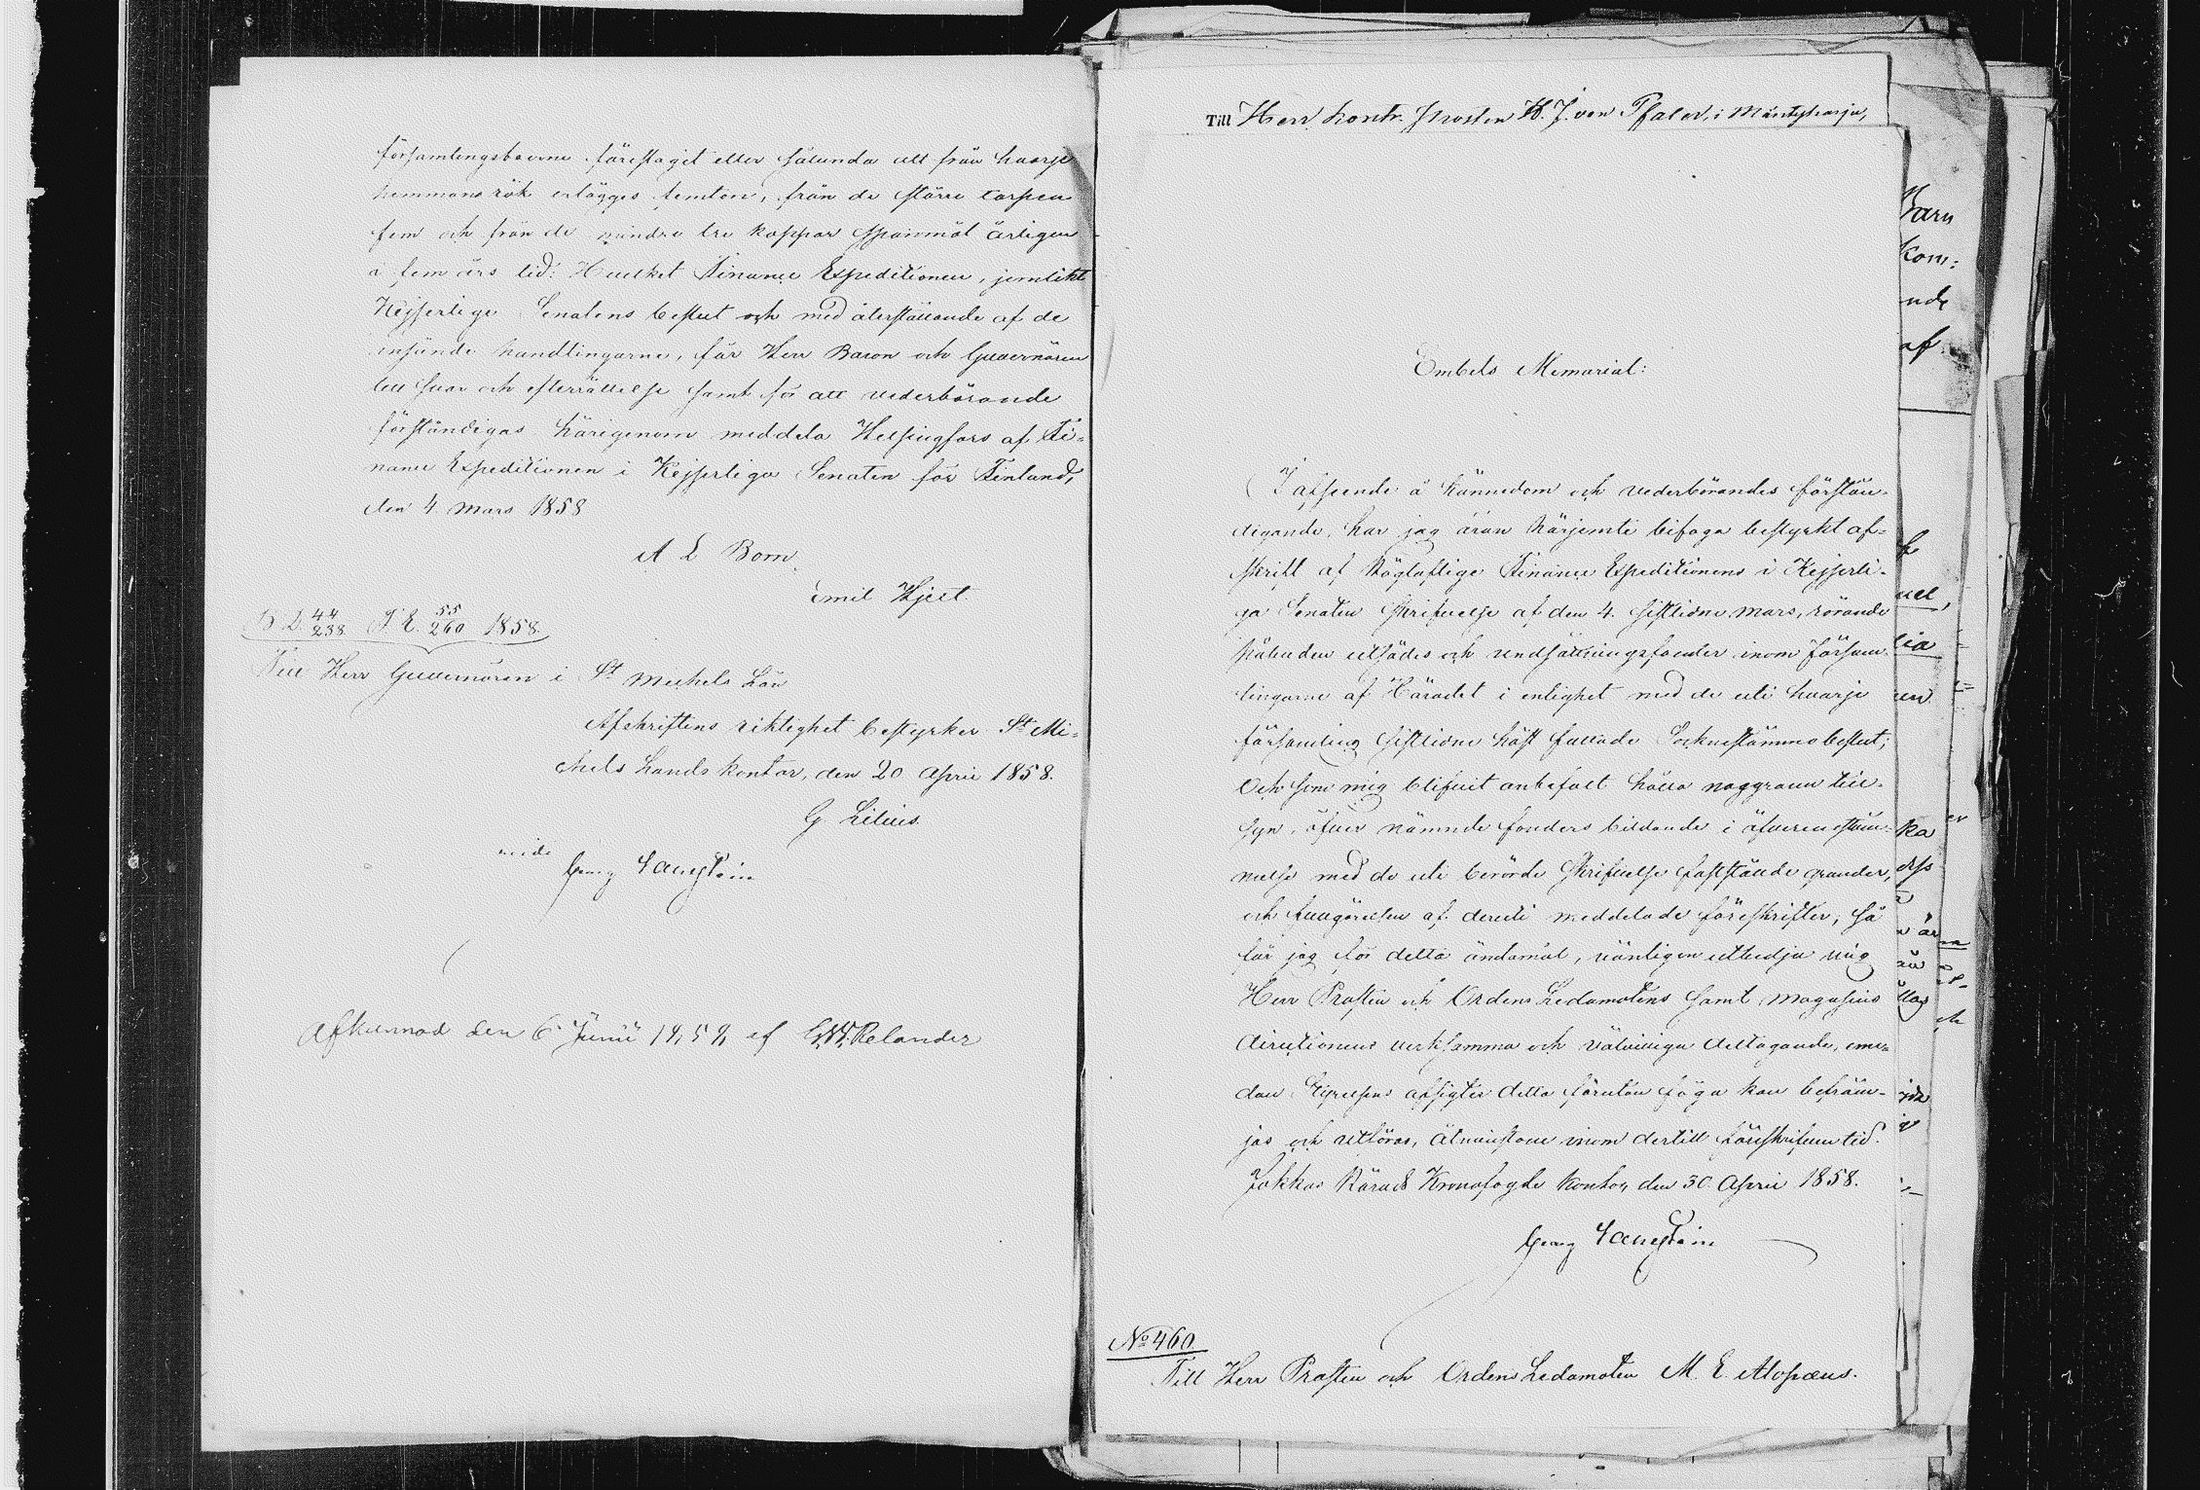 församlingsboerne föreslaget eller sålunda att från hvarje
hemmans rök erlägges femton, från de större torpen
fem och från de mindre tre kappar spanmål årligen
a fem års tid: Hvilket Finance Expeditionen, jemlikt
Kejserliga Senatens beslut och med återställande af de
insände handlingarne, får Herr Baron och Guvernören
till svar och efterrättelse samt för att vederbörande
förständigas härigenom meddela Helsingfors af Fi-
nance Expeditionen i Kejserliga Senaten för Finland,
den 4 Mars 1858
A L Born
Emil Hjelt
B. D. 44/238 F. E. 55/260 1858
Till Herr Guvernören i St Michels Län
Afskriftens riktighet bestyrker St Mi-
chels Lands kontor, den 20 April 1858.
G. Lilius
Georg
Afkunnad den 6 Junii 1858 af Relander
Till Herr Kontr. Prosten H. J. von Pfaler, i Mäntyharju,
Embets Memorial:
I afseende å kännedom och vederbörandes förstän-
digande, har jag äran härjemte bifoga bestyrkt af-
skrift af Högloflige Finance Expeditionens i Kejserli-
ga Senaten skrifvelse af den 4. sistlidne Mars, rörande
bildandet utsädes och undsättningsfonder inom försam-
lingarne af Häradet i enlighet med de uti hvarje
församling sistlidne höst fattade Socknestämmobeslut;
Och som mig blifvit anbefalt hålla noggrann till-
syn, öfver nämnde fonders bildande i öfverensstäm-
melse med de uti berörde skrifvelse fastställde grunder,
och fullgörelsen af deruti meddelade föreskrifter, så
får jag för detta ändamål, vänligen utbedja mig
Herr Prosten och Ordens Ledamotens samt Magasins
directionens verksamma och välvilliga deltagande, eme-
dan Styrelsens afsigter detta förutan föga kan befräm-
jas och utföras, åtminstone inom dertill föreskrifven tid.
Jokkas Härads Kronofogde Kontor, den 30 April 1858.
Georg
No 460
Till Herr Prosten och Ordens Ledamoten M. E. Alopæus.
Barn
kom:
nde
af